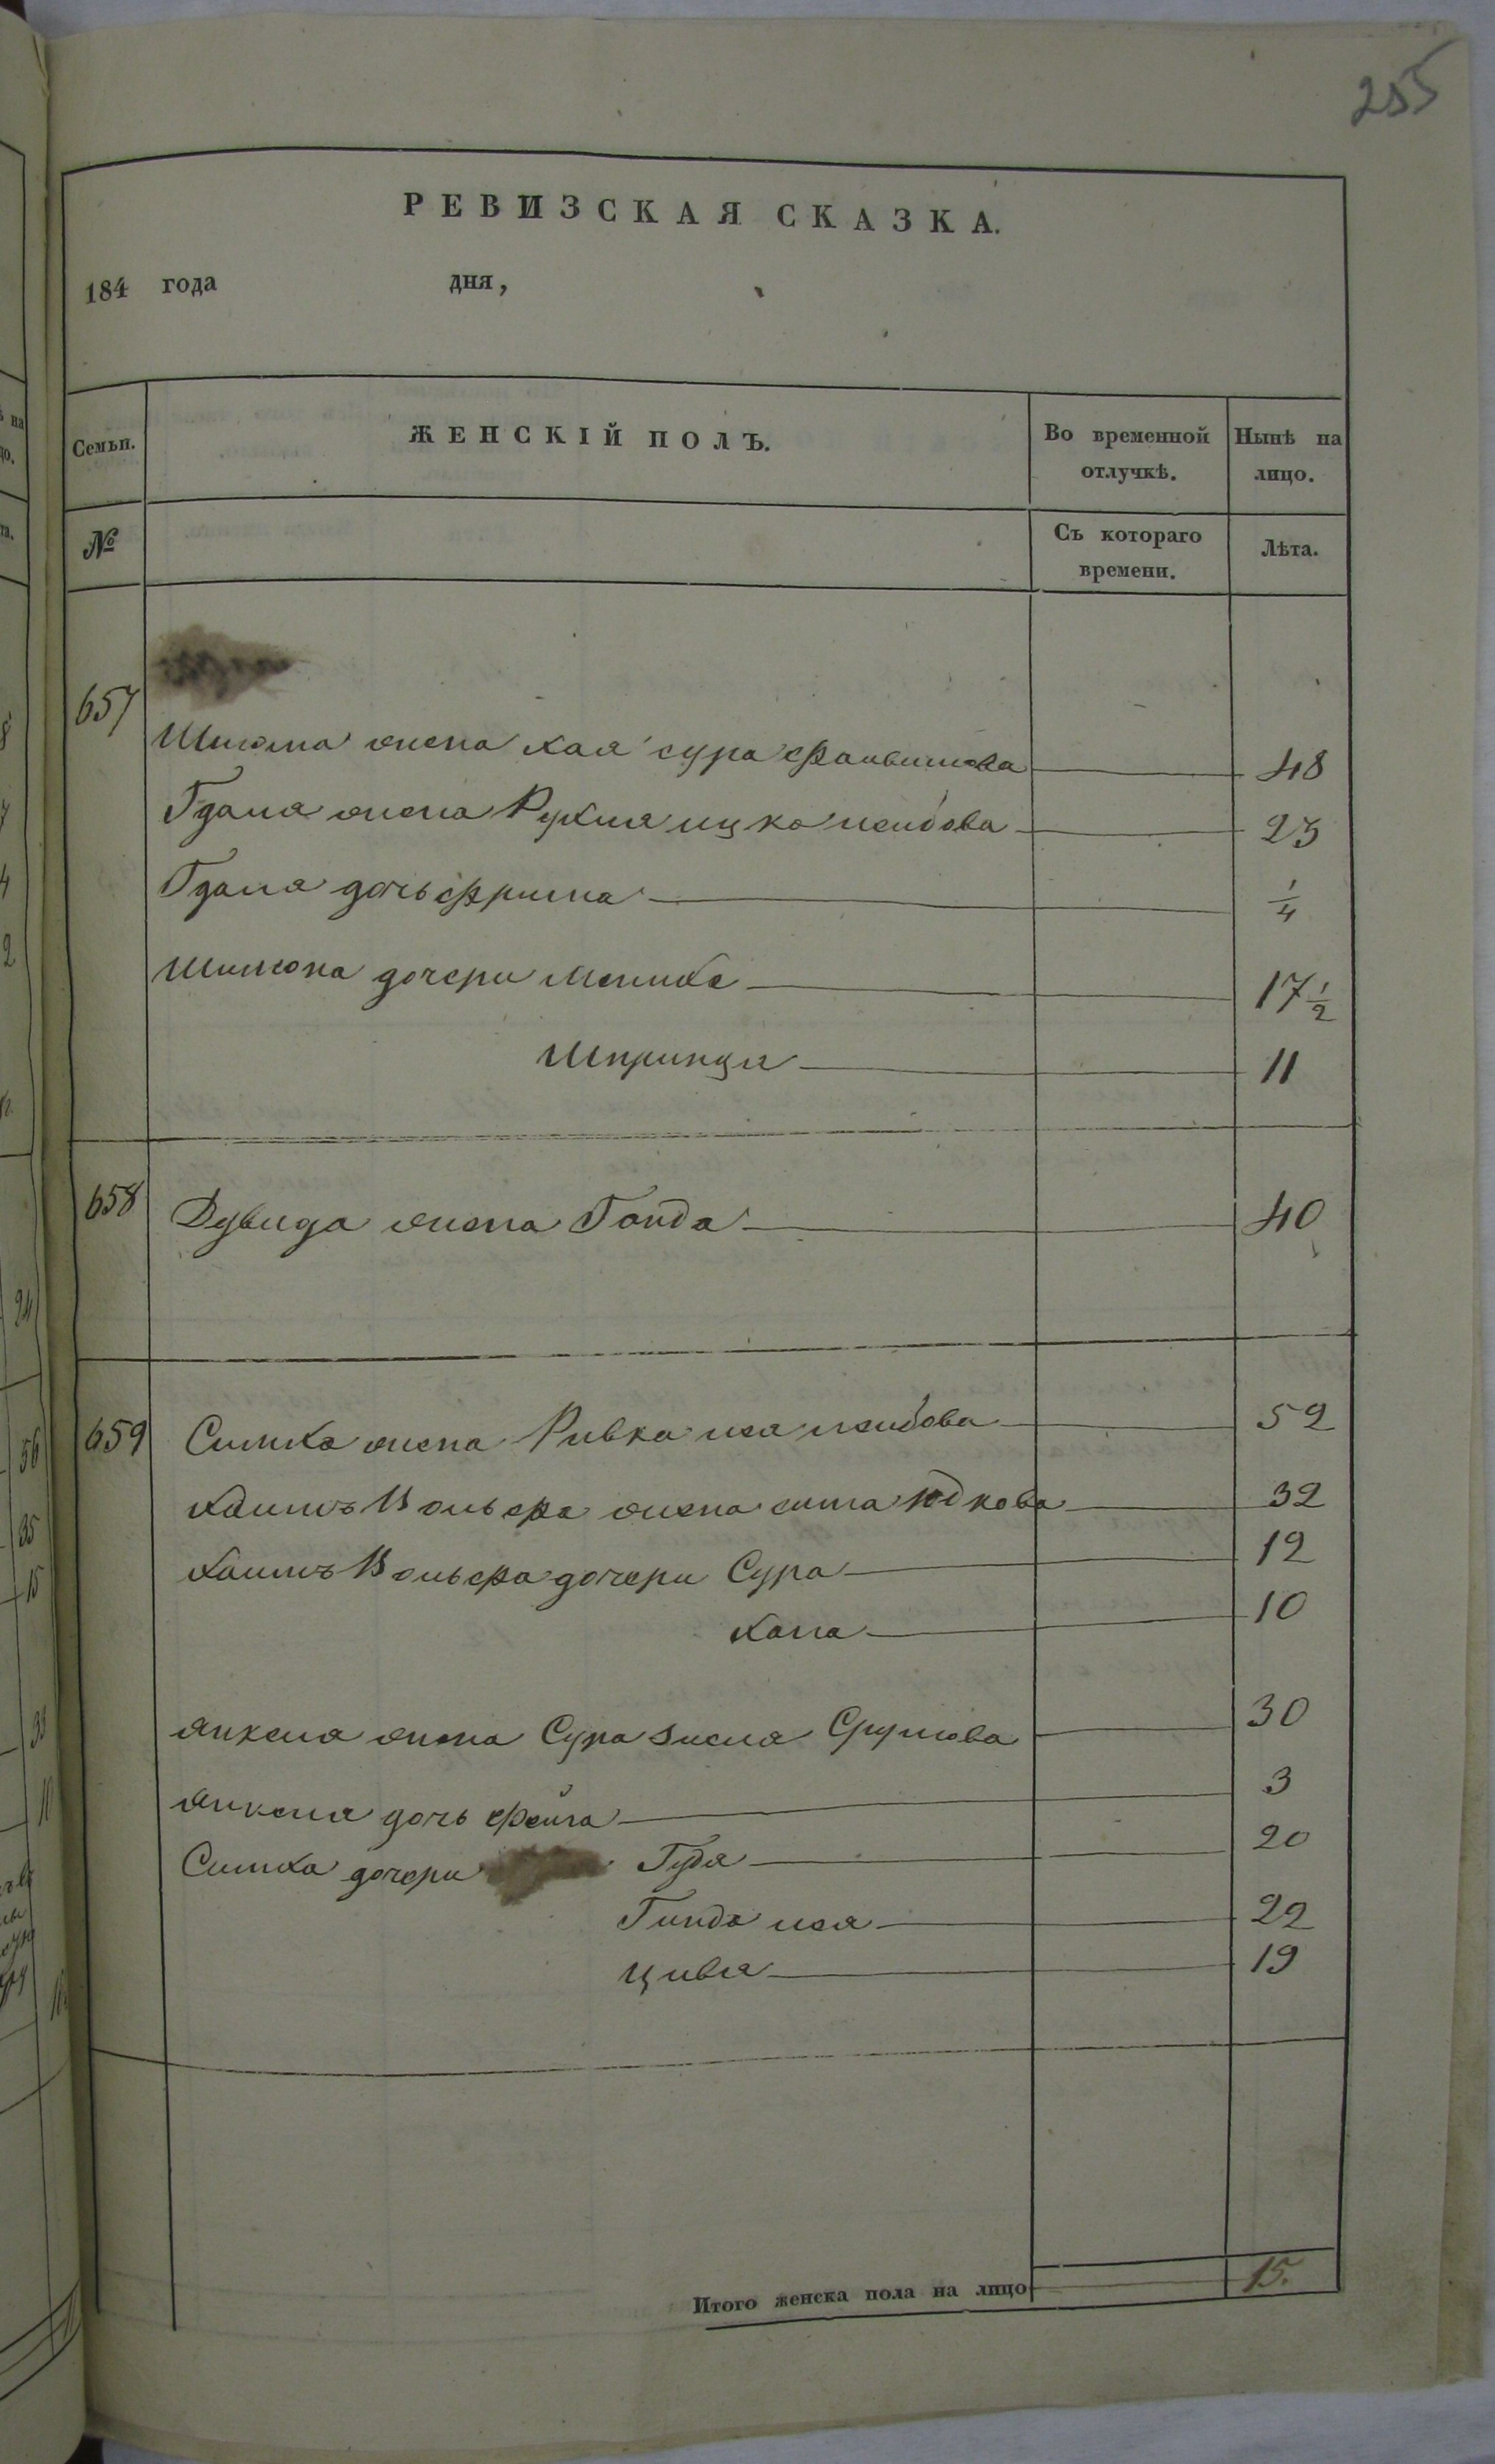 255
РЕВИЗСКАЯ СКАЗКА.
184 года дня,
Семьи. ЖЕНСКІЙ ПОЛЪ. Во временной отлучкѣ. Нынѣ на лицо.
№ Съ котораго времени. Лѣта.
657
Шимона жена Хая сура 48
Гдаля жена Рухля ицко лейбова 23
Гдаля дочь Фрима 1/4
Шимона дочери Менихе 17 1/2
Шпринца 11
658 Дувида жена Голда 40
659 Симха жена Ривка лея лейбова 52
Хаимъ Вольфа жена сима Юдкова 32
Хаимъ Вольфа дочери Сура 12
Хана 10
Янкеля жена Сура Зисля Срулова 30
Янкеля дочь Фейга 3
Симха дочери Гудя 20
Гинда лея 22
Цивя 19
Итого женска пола на лицо 15.